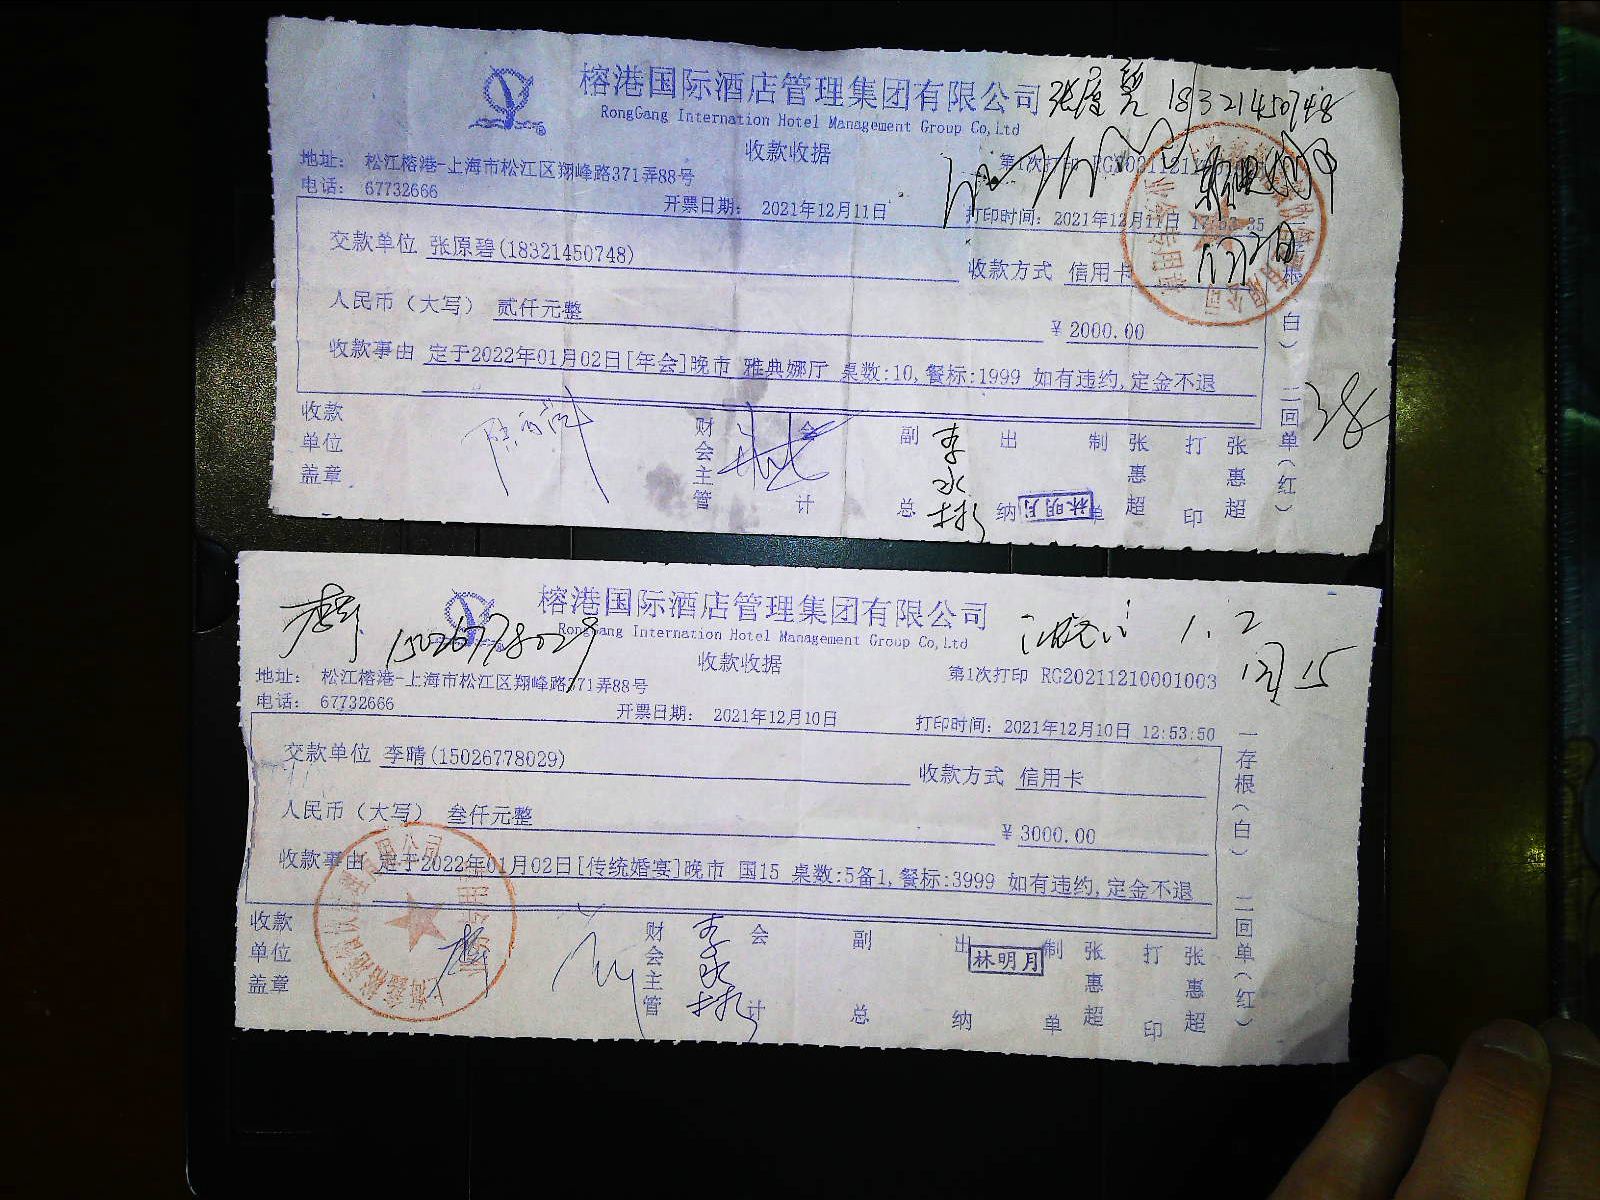 榕港国际酒店管理集团有限公司
张原碧 18321450748
RongGang Internation Hotel Management Group Co,Ltd
收款收据
地址： 松江榕港-上海市松江区翔峰路371弄88号
第1次打印
电话： 67732666
开票日期： 2021年12月11日
打印时间： 2021年12月11日
交款单位 张原碧(18321450748)
收款方式 信用卡
人民币（大写） 贰仟元整
￥2000.00
收款事由 定于2022年01月02日[年会]晚市 雅典娜厅 桌数:10,餐标:1999 如有违约,定金不退
根（白） 二回单（红）
38
收款单位盖章
财会主管
会计
副总
李水彬
出纳
林明月
制单
张惠超
打印
张惠超
榕港国际酒店管理集团有限公司
RongGang Internation Hotel Management Group Co,Ltd
15026778029
1.2
收款收据
地址： 松江榕港-上海市松江区翔峰路371弄88号
第1次打印 RG20211210001003
电话： 67732666
开票日期： 2021年12月10日
打印时间： 2021年12月10日 12:53:50
交款单位 李晴(15026778029)
收款方式 信用卡
人民币（大写） 叁仟元整
￥3000.00
收款事由 定于2022年01月02日[传统婚宴]晚市 国15 桌数:5备1,餐标:3999 如有违约,定金不退
一存根（白） 二回单（红）
收款单位盖章
财会主管
李水彬
会计
副总
出纳
林明月
制单
张惠超
打印
张惠超